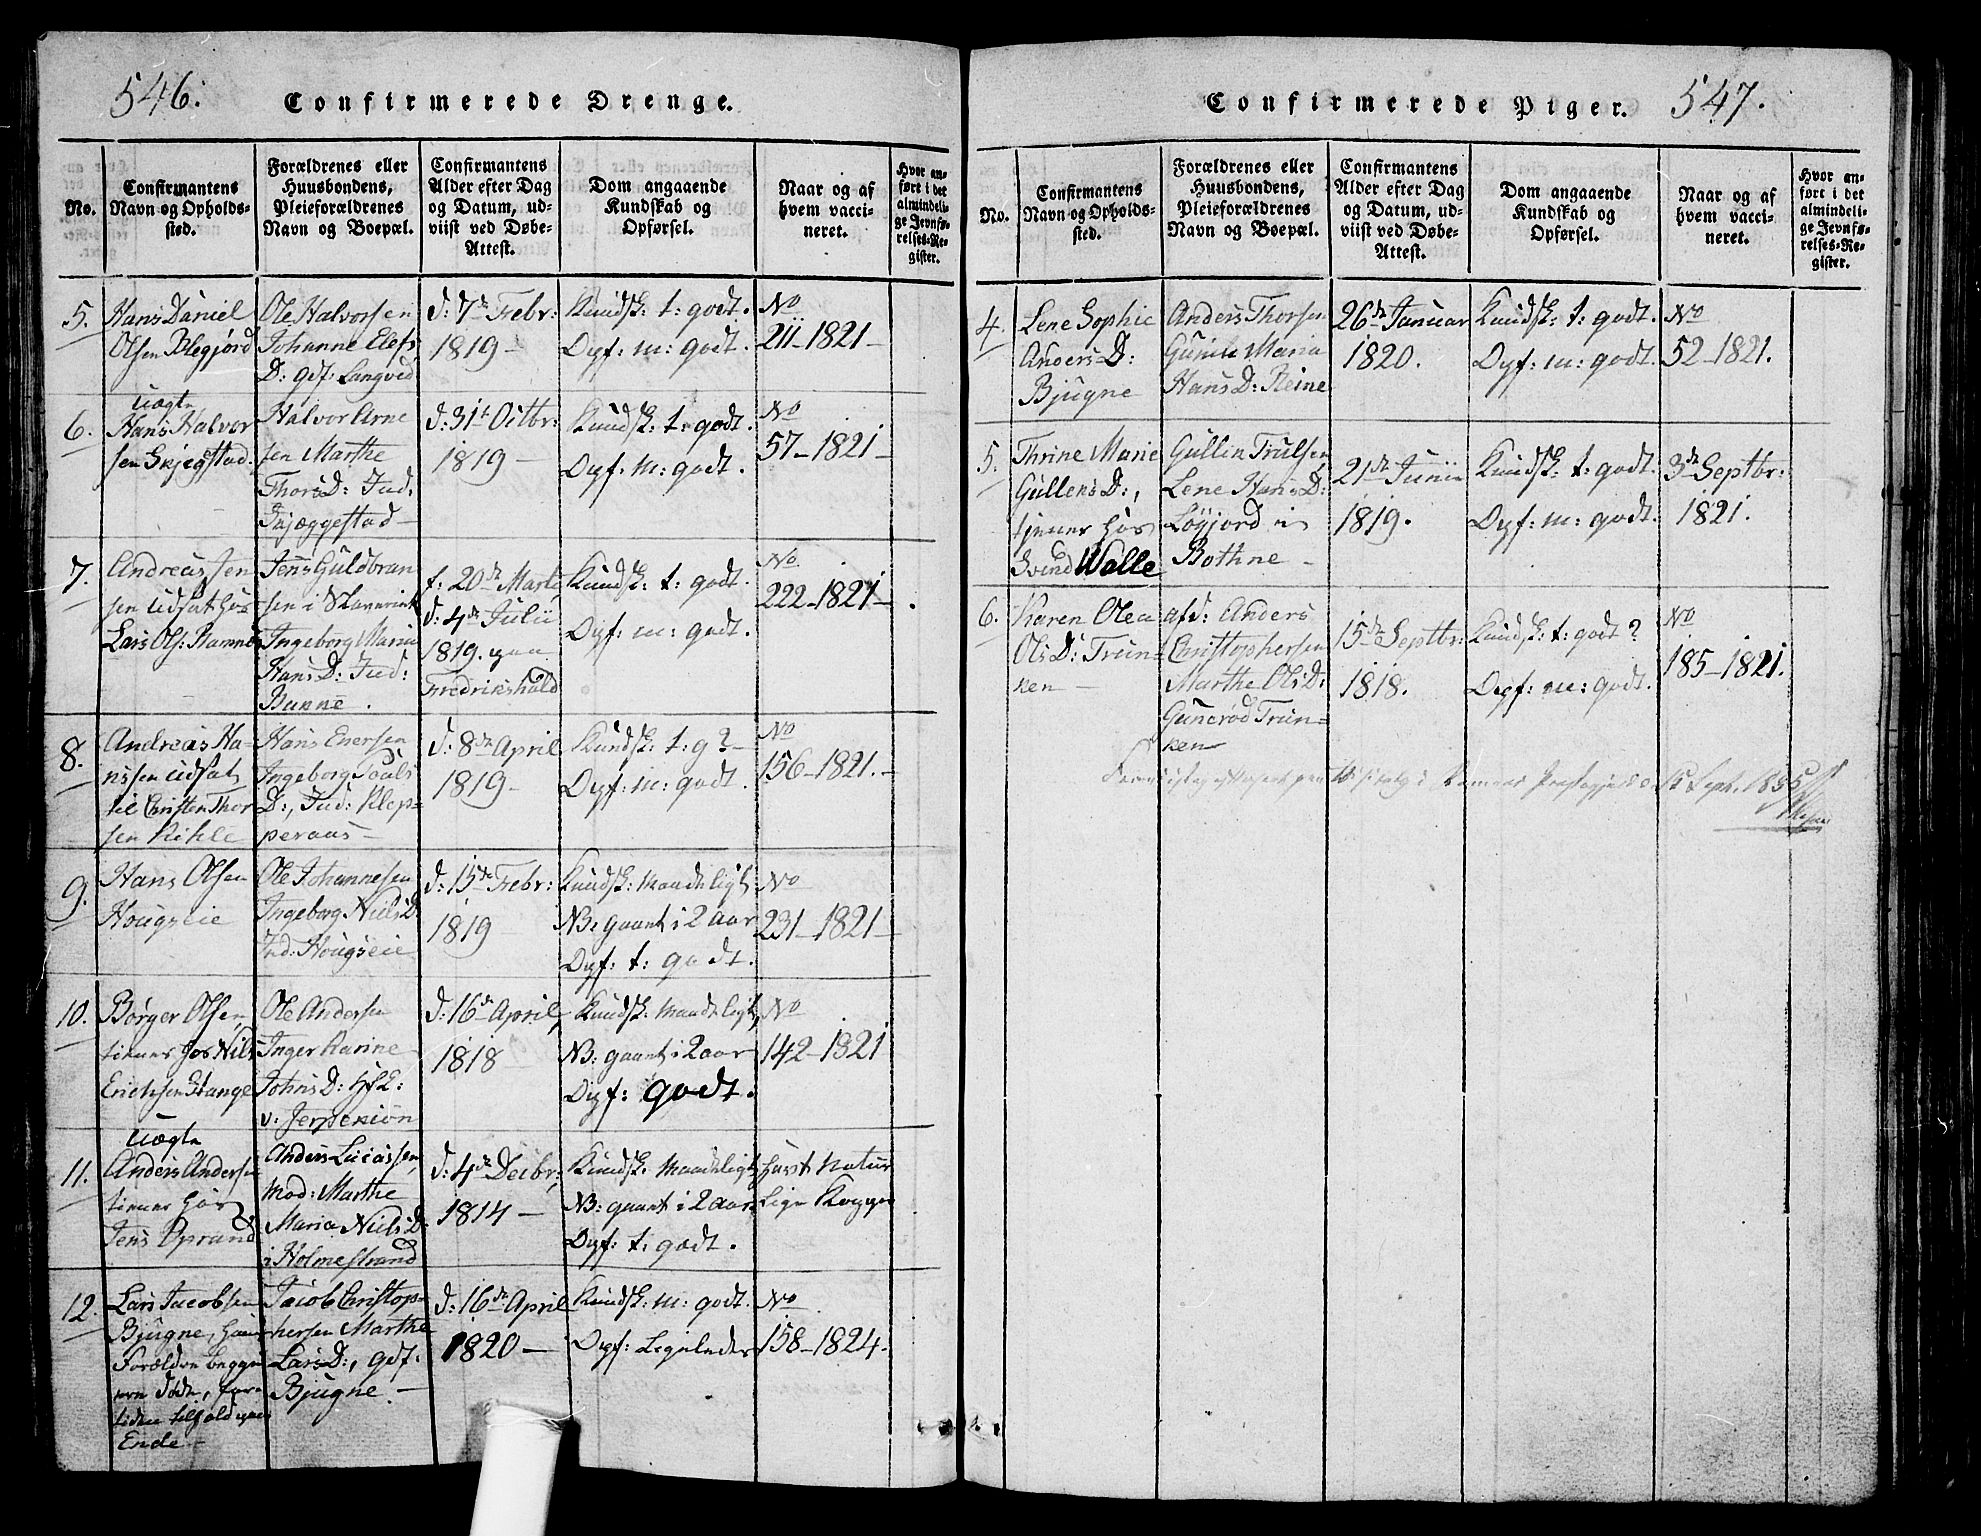 546.
Confirmerede Drenge.
No.
Confirmantens
Navn og Opholds-
sted.
Forældrenes eller
Huusbondens,
Pleieforældrenes
Navn og Boepæl.
Confirmantens
Alder efter Dag
og Datum, ud-
viist ved Døbe-
Attest.
Dom angaaende
Kundskab og
Opførsel.
Naar og af
hvem vacci-
neret.
Hvor an-
ført i det
almindeli-
ge Jevnfø-
relses-Re-
gister.
5.
Hans Daniel
Olsen Blegjord
Ole Halvorsen
Johanne Elefs
D: gdf. Langved
d: 7de Febr:
1819 –
Kundsk: t: godt.
Opf: m: godt.
No
211–1821–
6.
uægte
Hans Halvor
sen Skjegstad.
Halvor Arne
sen Marthe
Thors D: Ind.
Skjæggestad –
d: 31te Octbr:
1819 –
Kundsk: t: godt.
Opf: m: godt.
No
57–1821–
7.
Andreas Jen
sen udsat hos
Lars Ols: Ramne
Jens Guldbran
sen i
Ingeborg Maria
Hans D: Ind:
Banne.
f. 20de Marts
d: 4de Julii
1819. paa
Fredrikshald
Kundsk: t: godt.
Opf: m: godt.
No
222–1821–
8.
Andreas Ha-
nssen udsat
til Christen Thor
sen Kihle
Hans Enersen
Ingeborg Pouls
D:, Ind: Klep-
peraas –
d: 8de April
1819 –
Kundsk: t: g? –
Opf: m: godt.
No
156–1821.–
9.
Hans Olsen
Hougseie
Ole Johannesen
Ingeborg Niels D
Ind: Hougseie
d: 15de Febr:
1819 –
Kundsk: maadeligt
NB: gaaet i 2 aar
Opf: t: godt.
No
231–1821–
10.
Børger Olsen,
tiener hos Nils
Erichsen Stange
Ole Andersen
Inger Karine
Johns D:
v. Jerpekiøn
d: 16de April,
1818 –
Kundsk: maadeligt,
NB: gaaet i 2 aar
Opf: godt.
No
142–1821
11.
uægte
Anders Andersen
tiener hos
Jens Oprand
Anders Lucassen,
Mod: Marthe
Maria Niels D:
i Holmestrand
d: 4de Decbr:
1814 –
Kundsk: maadeligt
NB: gaaet i 2 aar
Opf: t: godt.
havt natur
lige Kopper
12.
Lars Jacobsen
Bjugne, hans
Forældre begge
ere døde, for
tiden tilhold paa
Ende –
Jacob Christop-
hersen Marthe
Lars D:, gdf.
Bjugne –
d: 16de April
1820 –
Kundsk: m: godt.
Opf: Ligeledes
No
158–1824.
Confirmerede Piger.
547.
No.
Confirmantens
Navn og Opholds-
sted.
Forældrenes eller
Huusbondens,
Pleieforældrenes
Navn og Boepæl.
Confirmantens
Alder efter Dag
og Datum, ud-
viist ved Døbe-
Attest.
Dom angaaende
Kundskab og
Opførsel.
Naar og af
hvem vacci-
neret.
Hvor an-
ført i det
almindeli-
ge Jevnfø-
relses-Re-
gister.
4.
Lene Sophie
Anders D:
Bjugne
Anders Thorsen
Gunile Maria
Hans D: Reine
26de Januar
1820.
Kundsk: t: godt.
Opf: m: godt.
No
52–1821.
5.
Thrine Marie
Gullens D:,
tjener hos
Svend Walle
Gullen Trulsen,
Lene Hans D:
Løgjord i
Bothne –
21de Junii
1819.
Kundsk: t: godt
Opf: m: godt.
3de Septbr:
1821.
6.
Karen Olea
Ols D: Trun-
ken –
afd: Anders
Christophersen
Marthe Ols D:
Gunerød Trun-
ken
15de Septbr:
1818.
Kundsk: t: godt?
Opf: m: godt.
No
185–1821.
Ramnes Præstegjeld Sept. 1835